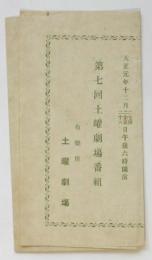 大正元年十二月二十五日二十六日午後六時開演
第七回土曜劇場番組
有樂座
土曜劇場